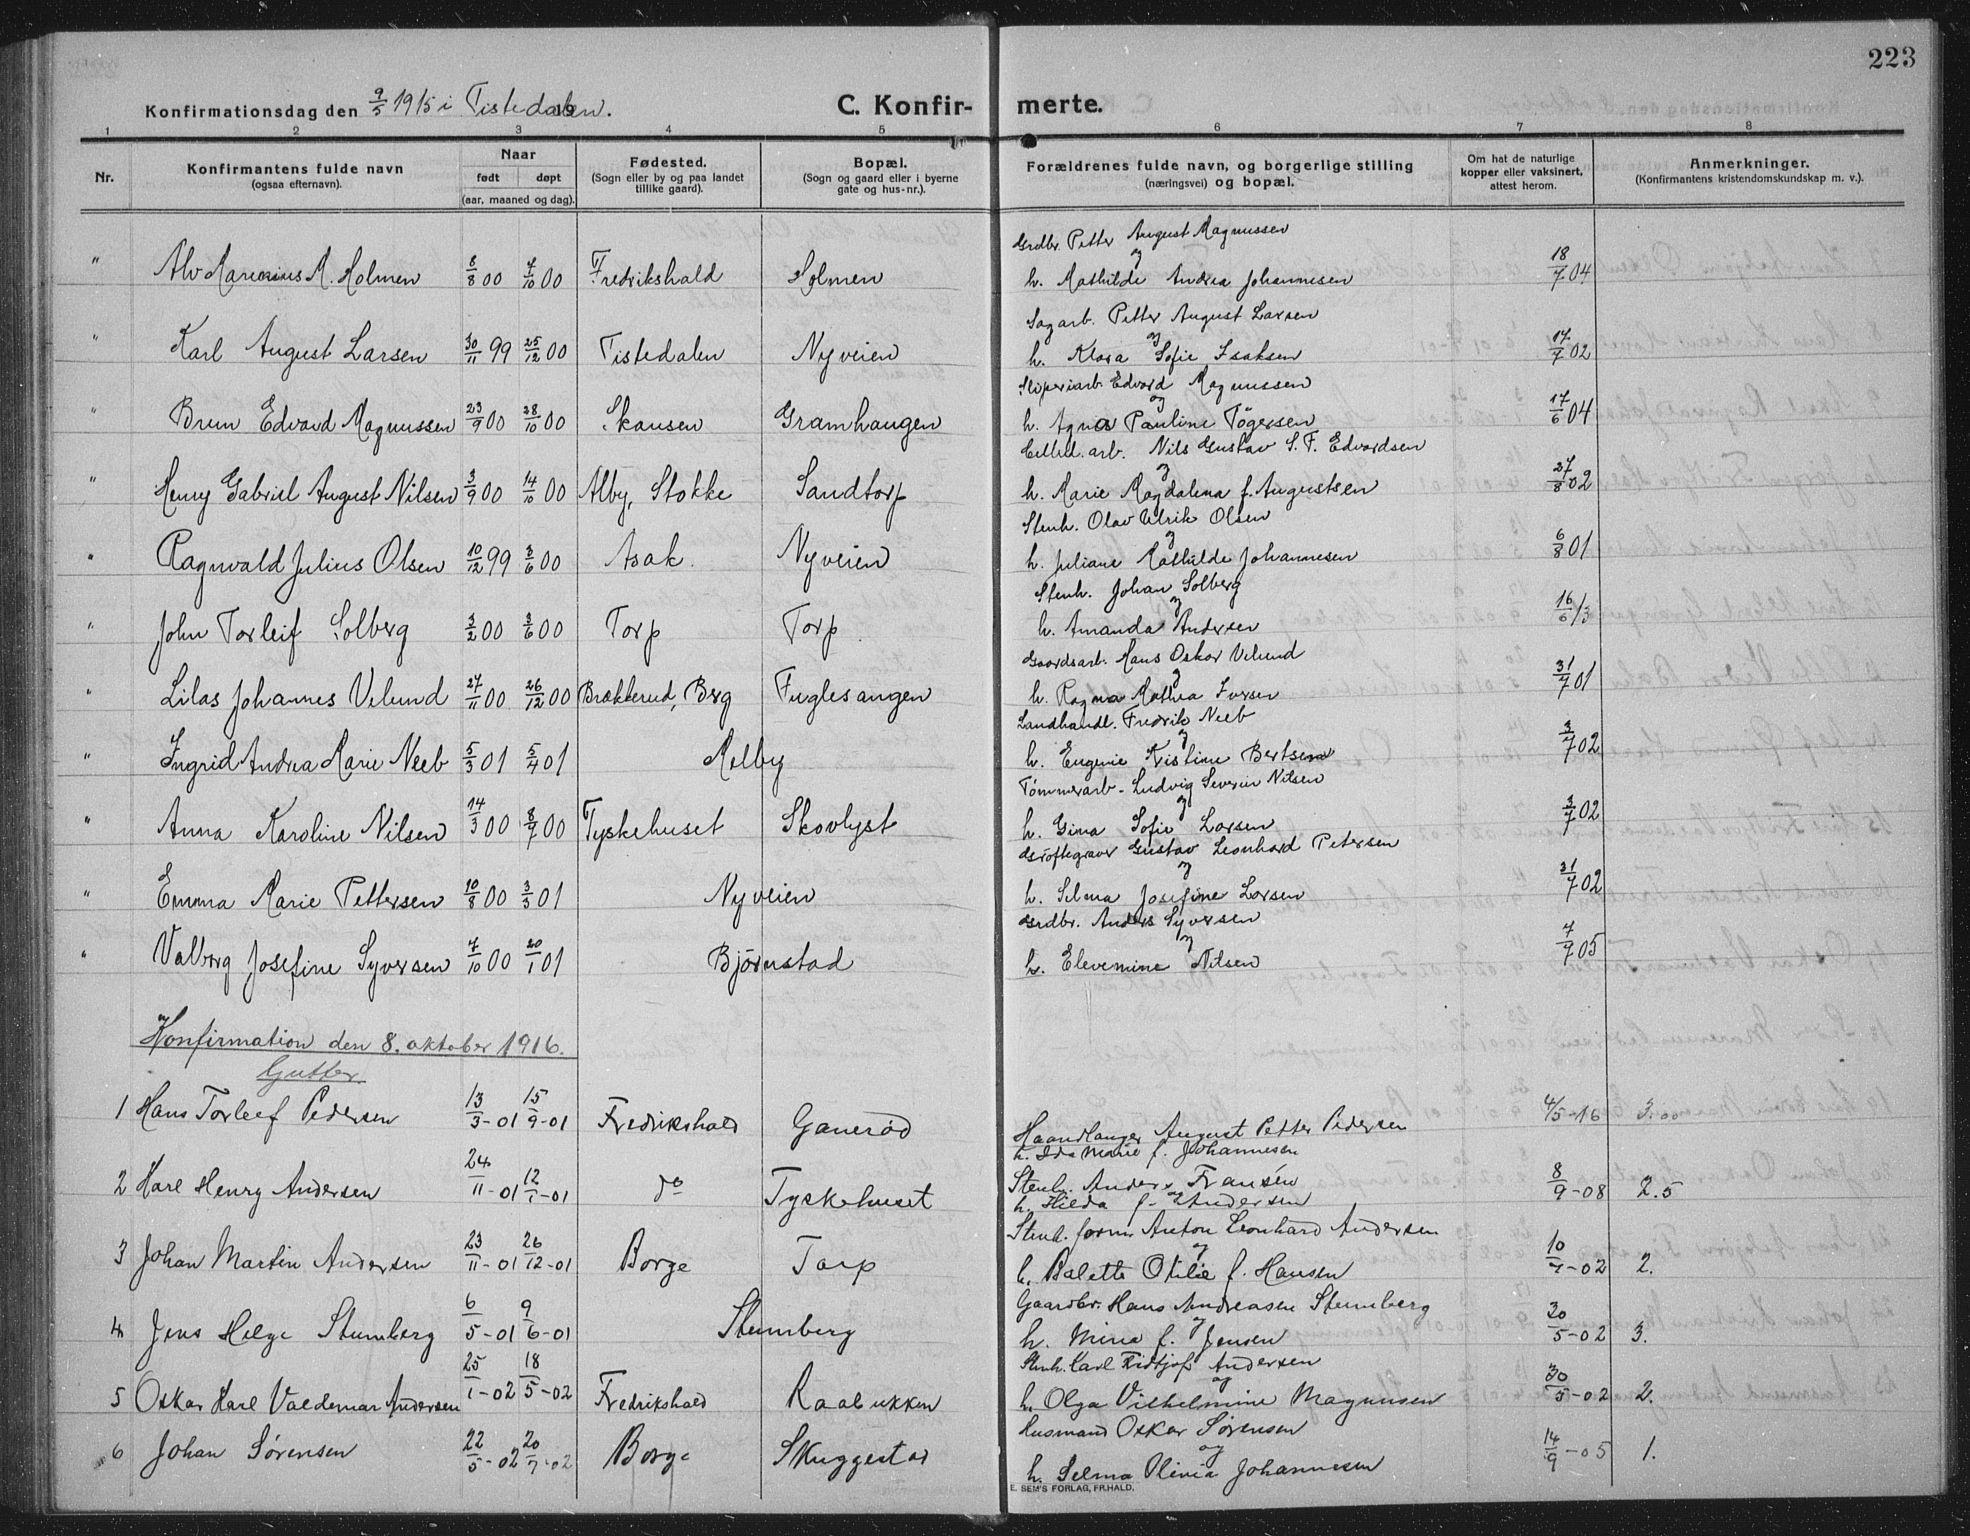 223
Konfirmationsdag den 9/5 1915 i Tistedalen. C. Konfir- merte.
1 2 3 4 5 6 7 8
Nr. Konfirmantens fulde navn (ogsaa efternavn). Naar født døpt (aar, maaned og dag). Fødested. (Sogn eller by og paa landet tillike gaard). Bopæl. (Sogn og gaard eller i byerne gate og hus-nr.). Forældrenes fulde navn, og borgerlige stilling (næringsvei) og bopæl. Om hat de naturlige kopper eller vaksinert, attest herom. Anmerkninger. (Konfirmantens kristendomskundskap m. v.).
Grdbr. Petter August Magnussen
" Alv Marenius M. Holmen 8/8 00 7/10 00 Fredrikshald Holmen og h. Mathilde Andrea Johannesen 18/7 04
Sagarb. Petter August Larsen
" Karl August Larsen 30/11 99 25/12 00 Tistedalen Nyveien og h. Klara Sofie Isaksen 17/7 02
Sliperiarb. Edvard Magnussen
" Brun Edvard Magnussen 23/9 00 28/10 00 Skansen Gramhaugen og h. Agnes Pauline Tøgersen 17/6 04
Cellul. arb. Nils Gustav S. F. Edvardsen
" Henry Gabriel August Nilsen 3/9 00 14/10 00 Alby, Stokke Sandtorp og h. Marie Magdalena f. Augustsen 27/8 02
Stenh. Olav Ulrik Olsen
" Ragnvald Julius Olsen 10/12 99 3/6 00 Asak. Nyveien og h. Juliane Mathilde Johannesen 6/8 01
Stenh. Johan Solberg
" John Torleif Solberg 3/2 00 3/6 00 Torp Torp og h. Amanda Andersen 16/6 13
Gaardsarb. Hans Oskar Velund
" Lilas Johannes Velund 27/11 00 26/12 00 Brækkerud, Berg Fuglesangen og h. Ragna Mathea Iversen 31/7 01
Landhandl. Fredrik Neeb
" Ingrid Andrea Marie Neeb 5/3 01 5/4 01 Melby og h. Eugenie Kristine Bertsen 3/7 02
Tømmerarb. Ludvig Severin Nilsen
" Anna Karoline Nilsen 14/3 00 8/7 00 Tyskehuset Skovlyst og h. Gina Sofie Larsen 3/7 02
Grøftegraver Gustav Leonhard Petersen
" Emma Marie Pettersen 10/8 00 3/3 01 Nyveien og h. Selma Josefine Larsen 31/7 02
Grdbr. Anders Syversen
" Valborg Josefine Syversen 7/10 00 20/1 01 Bjørnstad og h. Elevemine Nilsen 7/9 05
Konfirmation den 8. oktober 1916.
Gutter
1 Hans Torleef Pedersen 13/3-01 15/9-01 Fredrikshald Ganerød Haandlanger August Petter Pedersen 4/5-16 3.00
h. Ida Marie f. Johannesen
2 Karl Henry Andersen 24/11-01 12/1-01 do Tyskehuset Stenh. Anders Fransén 8/9-08 2.5
og h. Hilda f. Andersen
Stenh. form. Anton Leonhard Andersen
3 Johan Martin Andersen 23/11-01 26/12-01 Borge Torp og h. Balette Otilie f. Hansen 10/7-02 2.
Gaardbr. Hans Andreasen Stumberg
4 Jens Helge Stumberg 6/5-01 9/6-01 Stumberg og h. Mina f. Jensen 20/5-02 3.
Stenh. Karl Fridtjof Andersen
5 Oskar Karl Valdemar Andersen 25/1-02 18/5-02 Fredrikshald Raabukken og h. Olga Vilhelmine Magnusen 30/5-02 2.
Husmand Oskar Sørensen
6 Johan Sørensen 22/5-02 20/7-02 Borge Skuggestad og h. Selma Olivia Johannesen 14/9-05 1.
E. SEM'S FORLAG, FR.HALD.